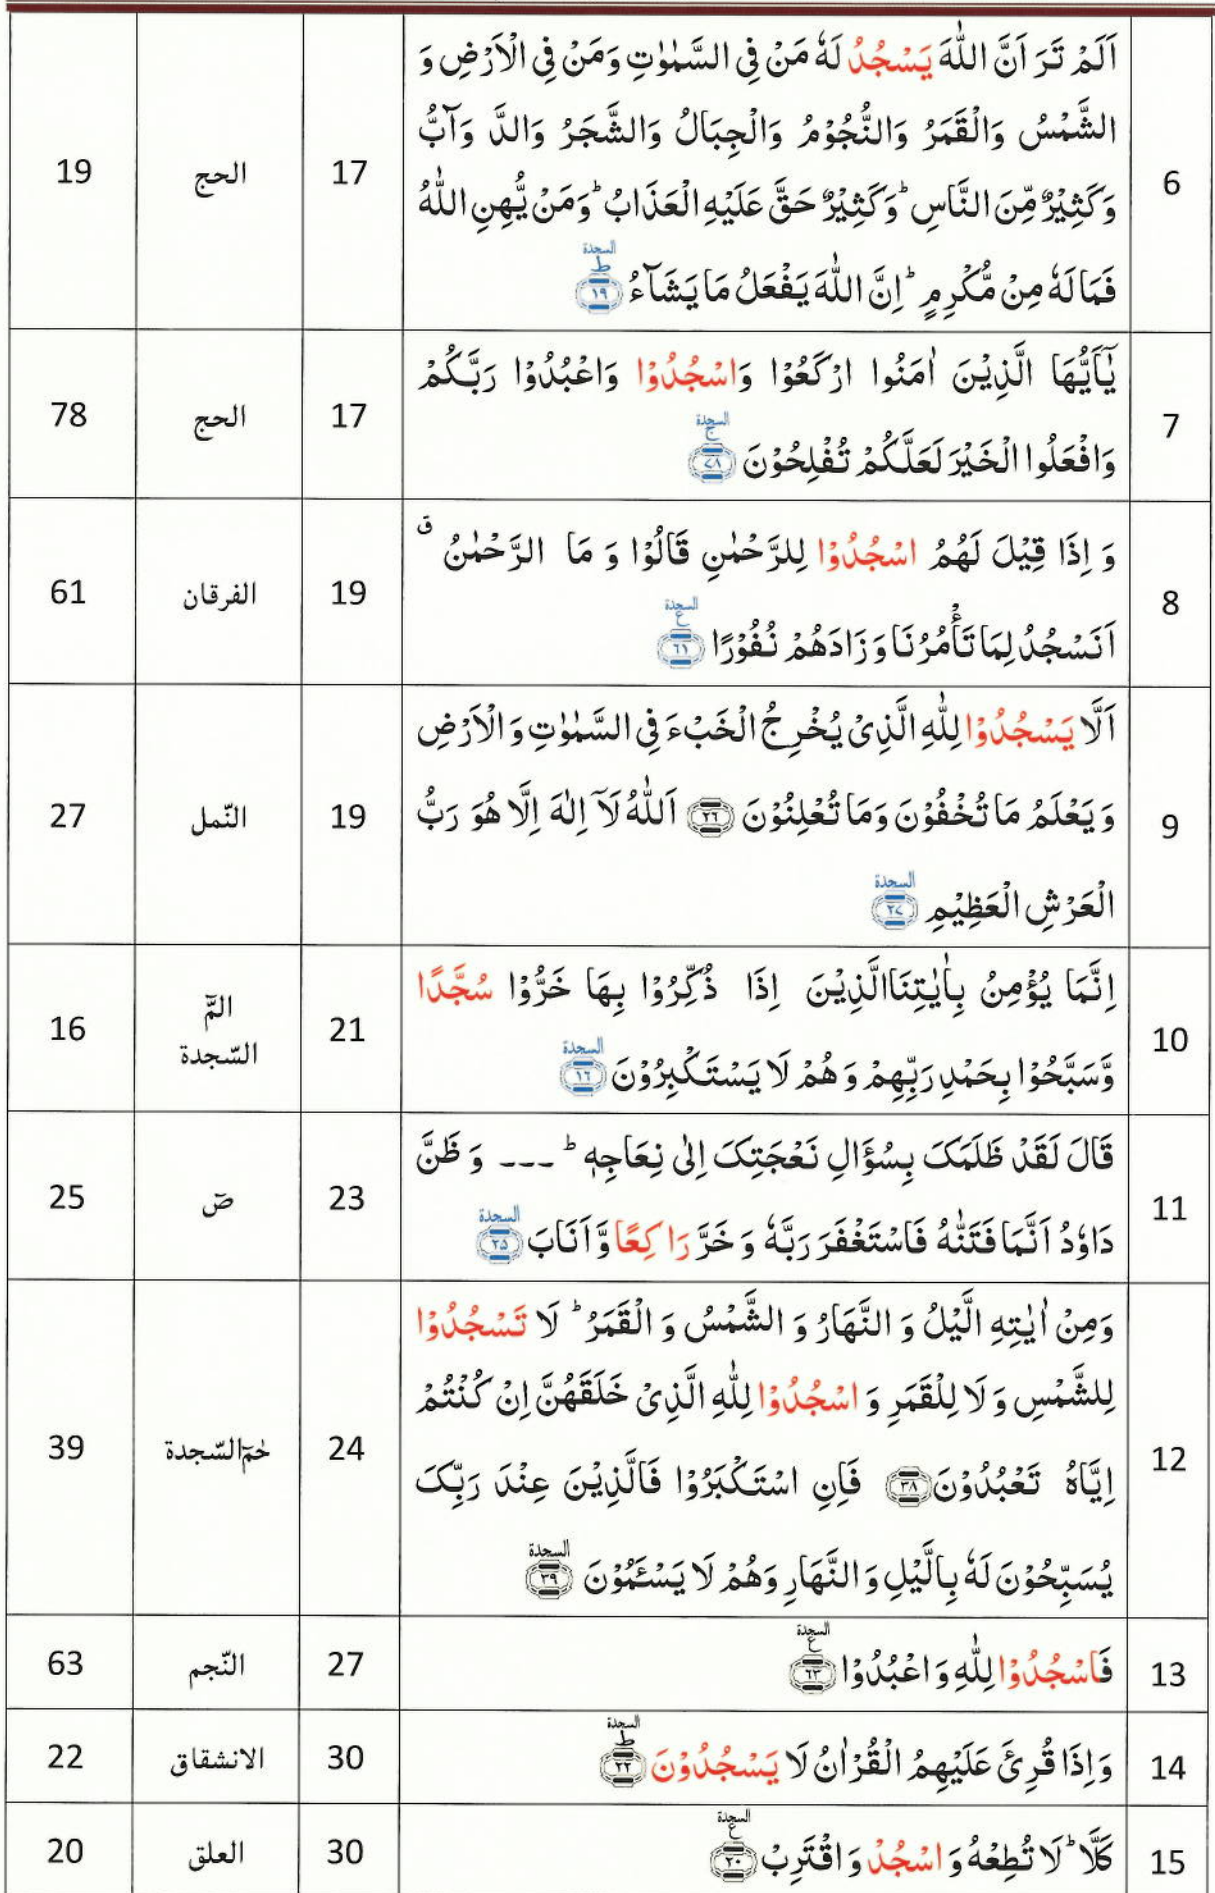 6
اَلَمْ تَرَ اَنَّ اللّٰهَ يَسْجُدُ لَهٗ مَنْ فِي السَّمٰوٰتِ وَمَنْ فِي الْاَرْضِ وَ
الشَّمْسُ وَالْقَمَرُ وَالنُّجُوْمُ وَالْجِبَالُ وَالشَّجَرُ وَالدَّ وَآبُّ
وَكَثِيْرٌ مِّنَ النَّاسِ ؕ وَكَثِيْرٌ حَقَّ عَلَيْهِ الْعَذَابُ ؕ وَمَنْ يُّهِنِ اللّٰهُ
السجدة
فَمَا لَهٗ مِنْ مُّكْرِمٍ ؕ اِنَّ اللّٰهَ يَفْعَلُ مَا يَشَآءُ ؕ ۱۹
17
الحج
19
7
يٰٓاَيُّهَا الَّذِيْنَ اٰمَنُوا ارْكَعُوْا وَاسْجُدُوْا وَاعْبُدُوْا رَبَّكُمْ
السجدة
وَافْعَلُوا الْخَيْرَ لَعَلَّكُمْ تُفْلِحُوْنَ ۚ ۷۸
17
الحج
78
8
وَ اِذَا قِيْلَ لَهُمُ اسْجُدُوْا لِلرَّحْمٰنِ قَالُوْا وَ مَا الرَّحْمٰنُ ق
السجدة ع
اَنَسْجُدُ لِمَا تَاْمُرُنَا وَ زَادَهُمْ نُفُوْرًا ٦۱
19
الفرقان
61
9
اَلَّا يَسْجُدُوْا لِلّٰهِ الَّذِيْ يُخْرِجُ الْخَبْءَ فِي السَّمٰوٰتِ وَ الْاَرْضِ
وَ يَعْلَمُ مَا تُخْفُوْنَ وَمَا تُعْلِنُوْنَ ۲٦ اَللّٰهُ لَآ اِلٰهَ اِلَّا هُوَ رَبُّ
السجدة
الْعَرْشِ الْعَظِيْمِ ۲۷
19
النّمل
27
10
اِنَّمَا يُؤْمِنُ بِاٰيٰتِنَا الَّذِيْنَ اِذَا ذُكِّرُوْا بِهَا خَرُّوْا سُجَّدًا
السجدة
وَّسَبَّحُوْا بِحَمْدِ رَبِّهِمْ وَ هُمْ لَا يَسْتَكْبِرُوْنَ ۱٦
21
الٓمّٓ
السّجدة
16
11
قَالَ لَقَدْ ظَلَمَكَ بِسُؤَالِ نَعْجَتِكَ اِلٰى نِعَاجِهٖ ؕ --- وَ ظَنَّ
السجدة
دَاوٗدُ اَنَّمَا فَتَنّٰهُ فَاسْتَغْفَرَ رَبَّهٗ وَ خَرَّ رَاكِعًا وَّ اَنَابَ ۲۵
23
صٓ
25
12
وَمِنْ اٰيٰتِهِ الَّيْلُ وَ النَّهَارُ وَ الشَّمْسُ وَ الْقَمَرُ ؕ لَا تَسْجُدُوْا
لِلشَّمْسِ وَ لَا لِلْقَمَرِ وَ اسْجُدُوْا لِلّٰهِ الَّذِيْ خَلَقَهُنَّ اِنْ كُنْتُمْ
اِيَّاهُ تَعْبُدُوْنَ ۳۸ فَاِنِ اسْتَكْبَرُوْا فَالَّذِيْنَ عِنْدَ رَبِّكَ
السجدة
يُسَبِّحُوْنَ لَهٗ بِالَّيْلِ وَ النَّهَارِ وَهُمْ لَا يَسْـَٔمُوْنَ ۳۹
24
حٰمٓ السّجدة
39
13
السجدة ع
فَاسْجُدُوْا لِلّٰهِ وَ اعْبُدُوْا ٦۲
27
النّجم
63
14
السجدة
وَاِذَا قُرِئَ عَلَيْهِمُ الْقُرْاٰنُ لَا يَسْجُدُوْنَ ؕ ۲۲
30
الانشقاق
22
15
السجدة ع
كَلَّا ؕ لَا تُطِعْهُ وَ اسْجُدْ وَ اقْتَرِبْ ۲۰
30
العلق
20